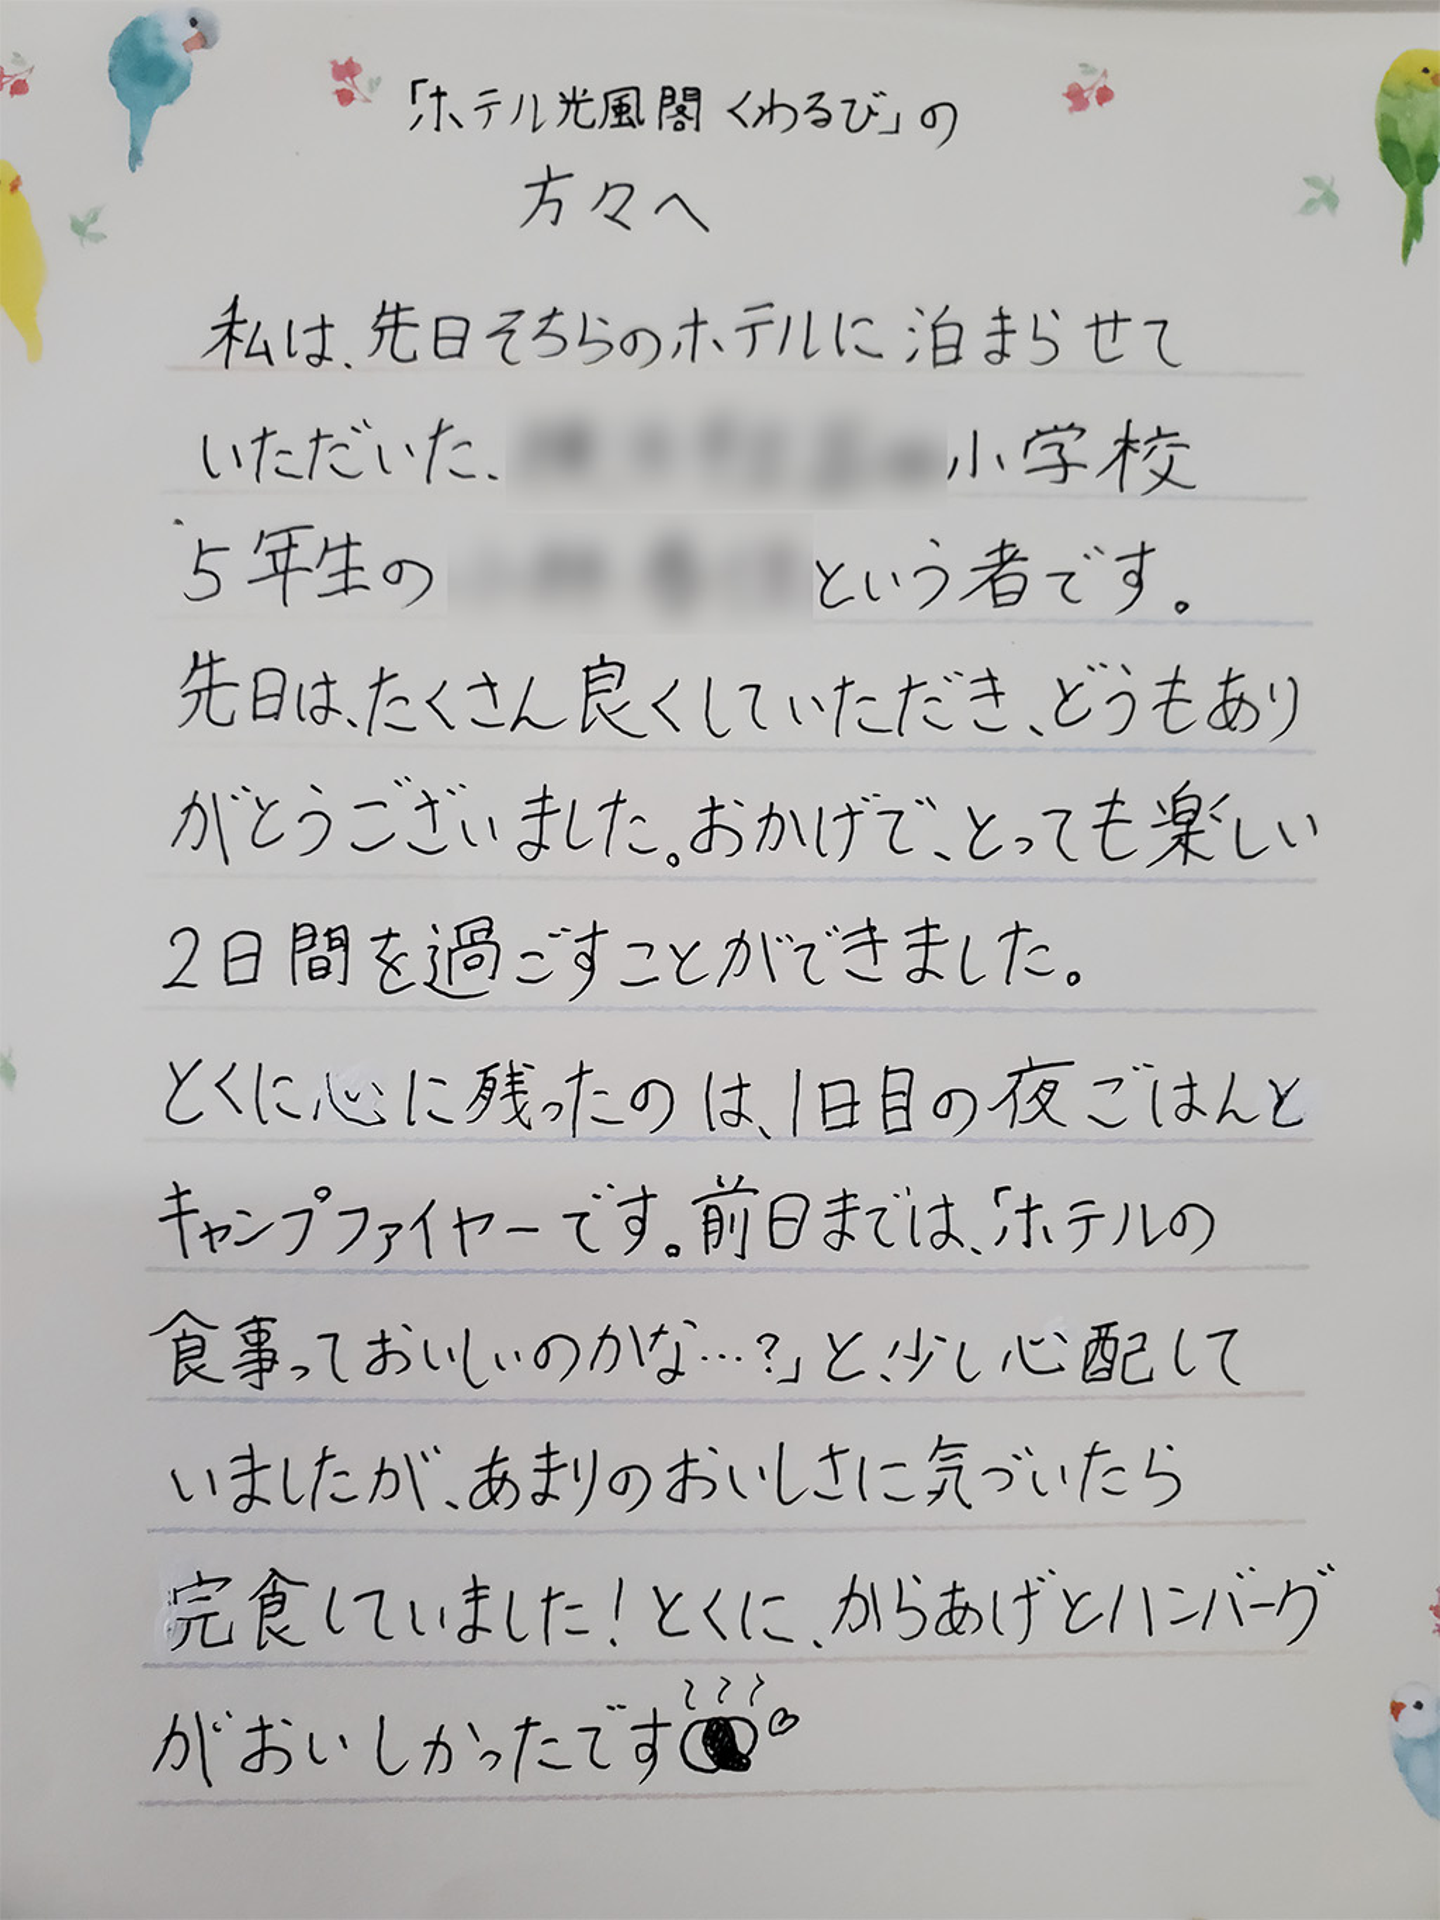 「ホテル光風閣 くわるび」の
方々へ
私は、先日そちらのホテルに泊まらせて
いただいた、小学校
5年生のという者です。
先日は、たくさん良くしていただき、どうもあり
がとうございました。おかげで、とっても楽しい
2日間を過ごすことができました。
とくに心に残ったのは、1日目の夜ごはんと
キャンプファイヤーです。前日までは、「ホテルの
食事っておいしいのかな…?」と、少し心配して
いましたが、あまりのおいしさに気づいたら
完食していました!とくに、からあげとハンバーグ
がおいしかったです